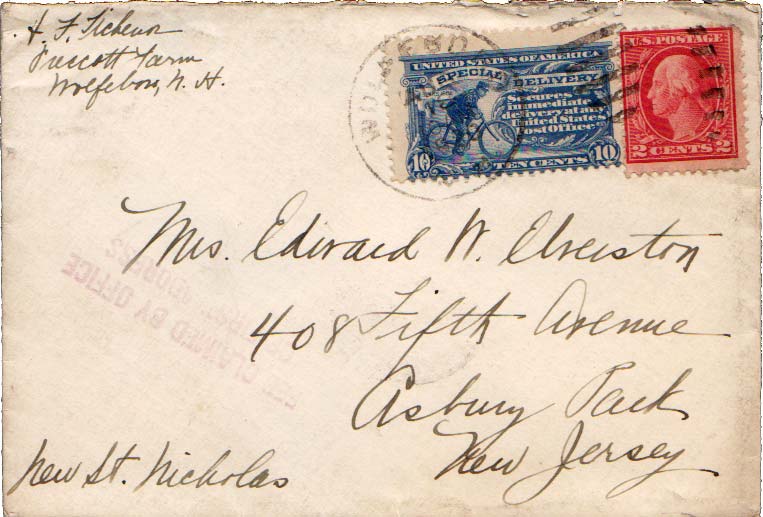 H. F. Tichenor
Prescott Farm
Wolfeboro, N. H.
WOLFEBORO
UNITED STATES OF AMERICA
SPECIAL DELIVERY
Secures
immediate
delivery at any
United States
Post Office.
10 TEN CENTS 10
U.S. POSTAGE
2 CENTS 2
Mrs. Edward W. Elverston
408 Fifth Avenue
Asbury Park
New Jersey
FEE CLAIMED BY OFFICE
OF FIRST ADDRESS
New St. Nicholas